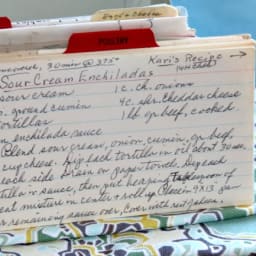 POULTRY
Kari's Recipe
30 min @ 375°
Sour Cream Enchiladas
sour cream 1 c. ch. onions
ground cumin 4 c. shr. cheddar cheese
tortillas 1 lb gr beef, cooked
enchilada sauce
Blend sour cream, onion, cumin, gr. beef,
cup cheese. Dip each tortilla in oil about 30 sec.
each side. Drain on paper towel. Dip each
tortilla in sauce, then put heaping Tablespoon of
meat mixture in center & roll up. Place in 9x13 pan
remaining sauce over, Cover with